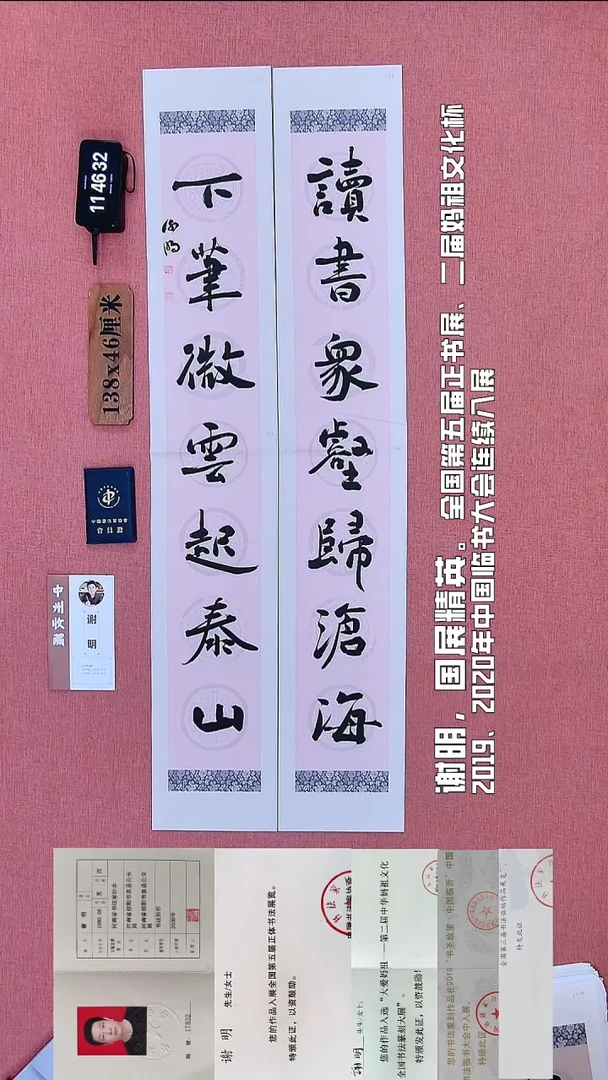 讀書衆壑歸滄海
下筆微雲起泰山
谢明，国展精英。全国第五届正书展、二届妈祖文化杯
2019、2020年中国临书大会连续入展
11 46 32
138x46厘米
谢 明 先生/女士
您的作品入展全国第五届正体书法展览。
特颁此证，以资鼓励。
谢明 先生/女士：
您的作品入选“大爱妈祖——第二届中华妈祖文化
全国书法篆刻大展”。
特颁发此证，以资鼓励！
您的书法篆刻作品在2019“书圣故里·中国临沂·中国
书法临书大会中入展。
特颁此证
特发此证